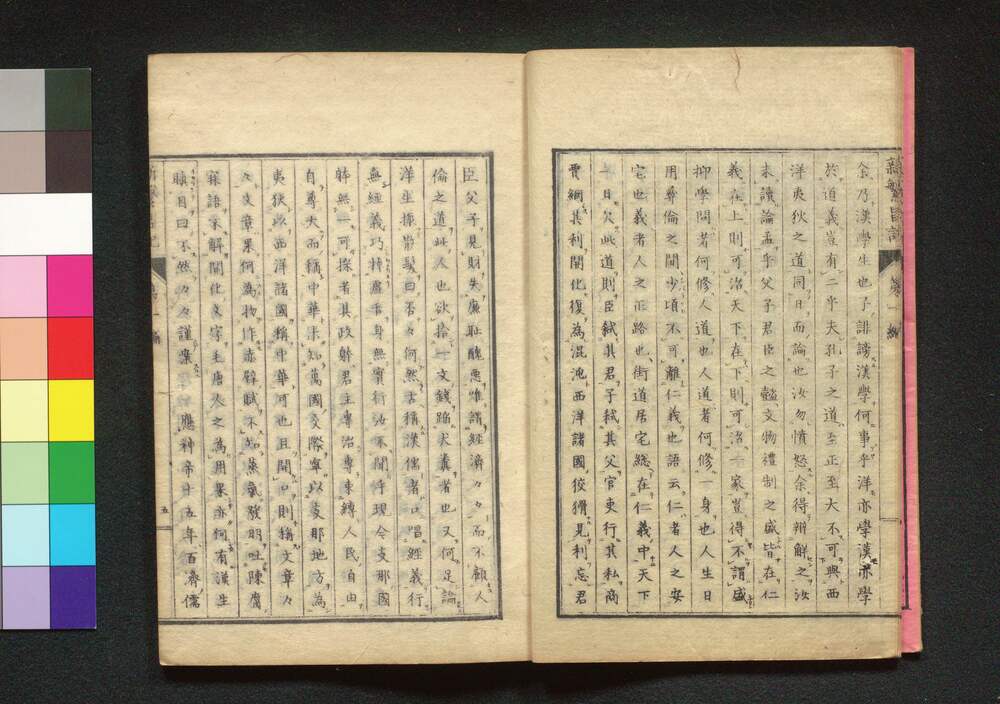 余乃漢學生也子誹謗漢學何事乎洋亦學漢亦學
於道義豈有二乎夫孔子之道至正至大不可與西
洋夷狄之道同日而論也汝勿憤怒余得辯解之汝
未讀論孟乎父子君臣之懿文物禮制之盛皆在仁
義在上則可治天下在下則可治一家豈得不謂盛
抑學問者何修人道也人道者何修一身也人生日
用彝倫之間少頃不可離仁義也語云仁者人之安
宅也義者人之正路也街道居宅總在仁義中天下
一日欠此道則臣弑其君子弑其父官吏行其私商
賈網其利開化復為混沌西洋諸國狡猾見利忘君
臣父子見財失廉恥醜惡唯謂經濟々々而不顧人
倫之道此人也欲拾一文錢踊犬糞者也又何足論
洋生操散髮曰否々何然君稱漢儒者口唱經義行
無經義巧持虛舌身無實行汝不聞乎現今支那國
躰無一可採者其政躰君主專治專束縛人民自由
自尊大而稱中華未知萬國交際寧以支那地方為
夷狄以西洋諸國稱中華可也且開口則稱文章々
々文章果何為物作赤壁賦不知蒸氣發明吐陳腐
寐語不解開化文字毛唐人之為用果亦何有漢生
瞋目曰不然々々謹案 應神帝十五年百濟儒
新繁昌記
一編
五